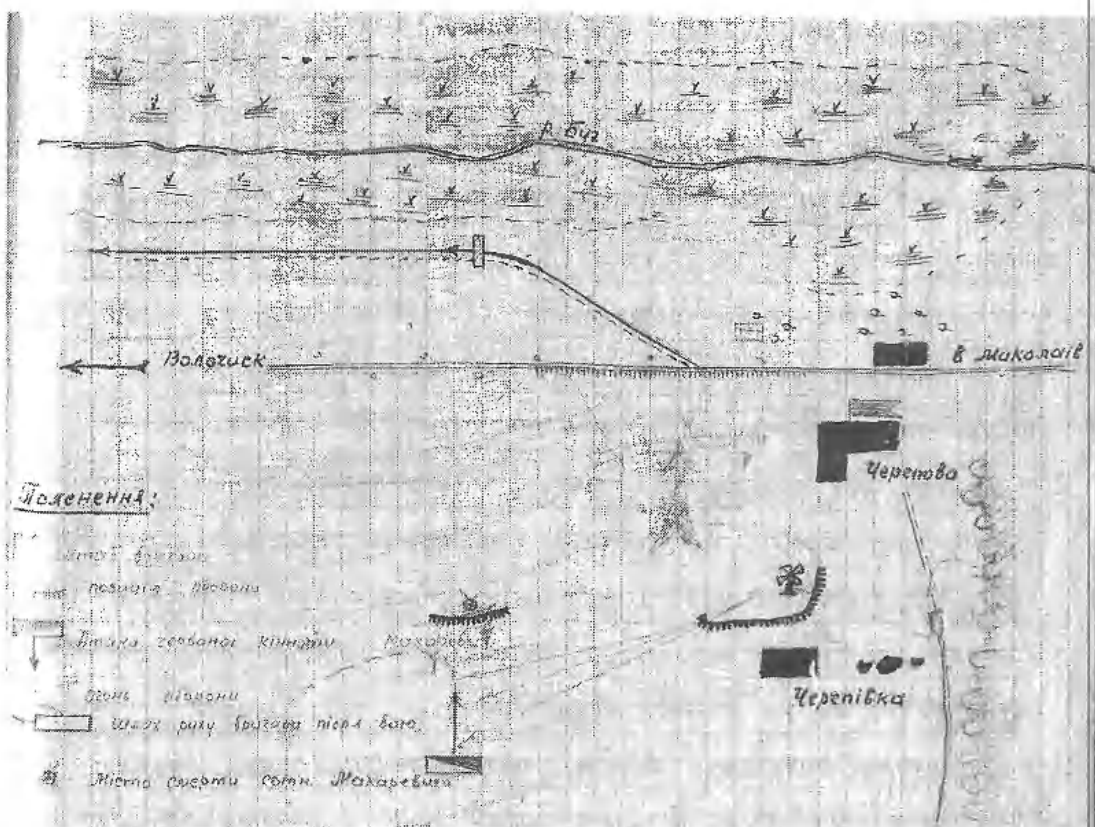 р. Буг
Волочиск
в Миколаїв
Черепова
Пояснення:
позиція оборони
Атака червоної кінноти
Макаревич
Черепівка
огонь оборони
Шлях руху бригади після бою
Місто смерти сотн. Макаревича